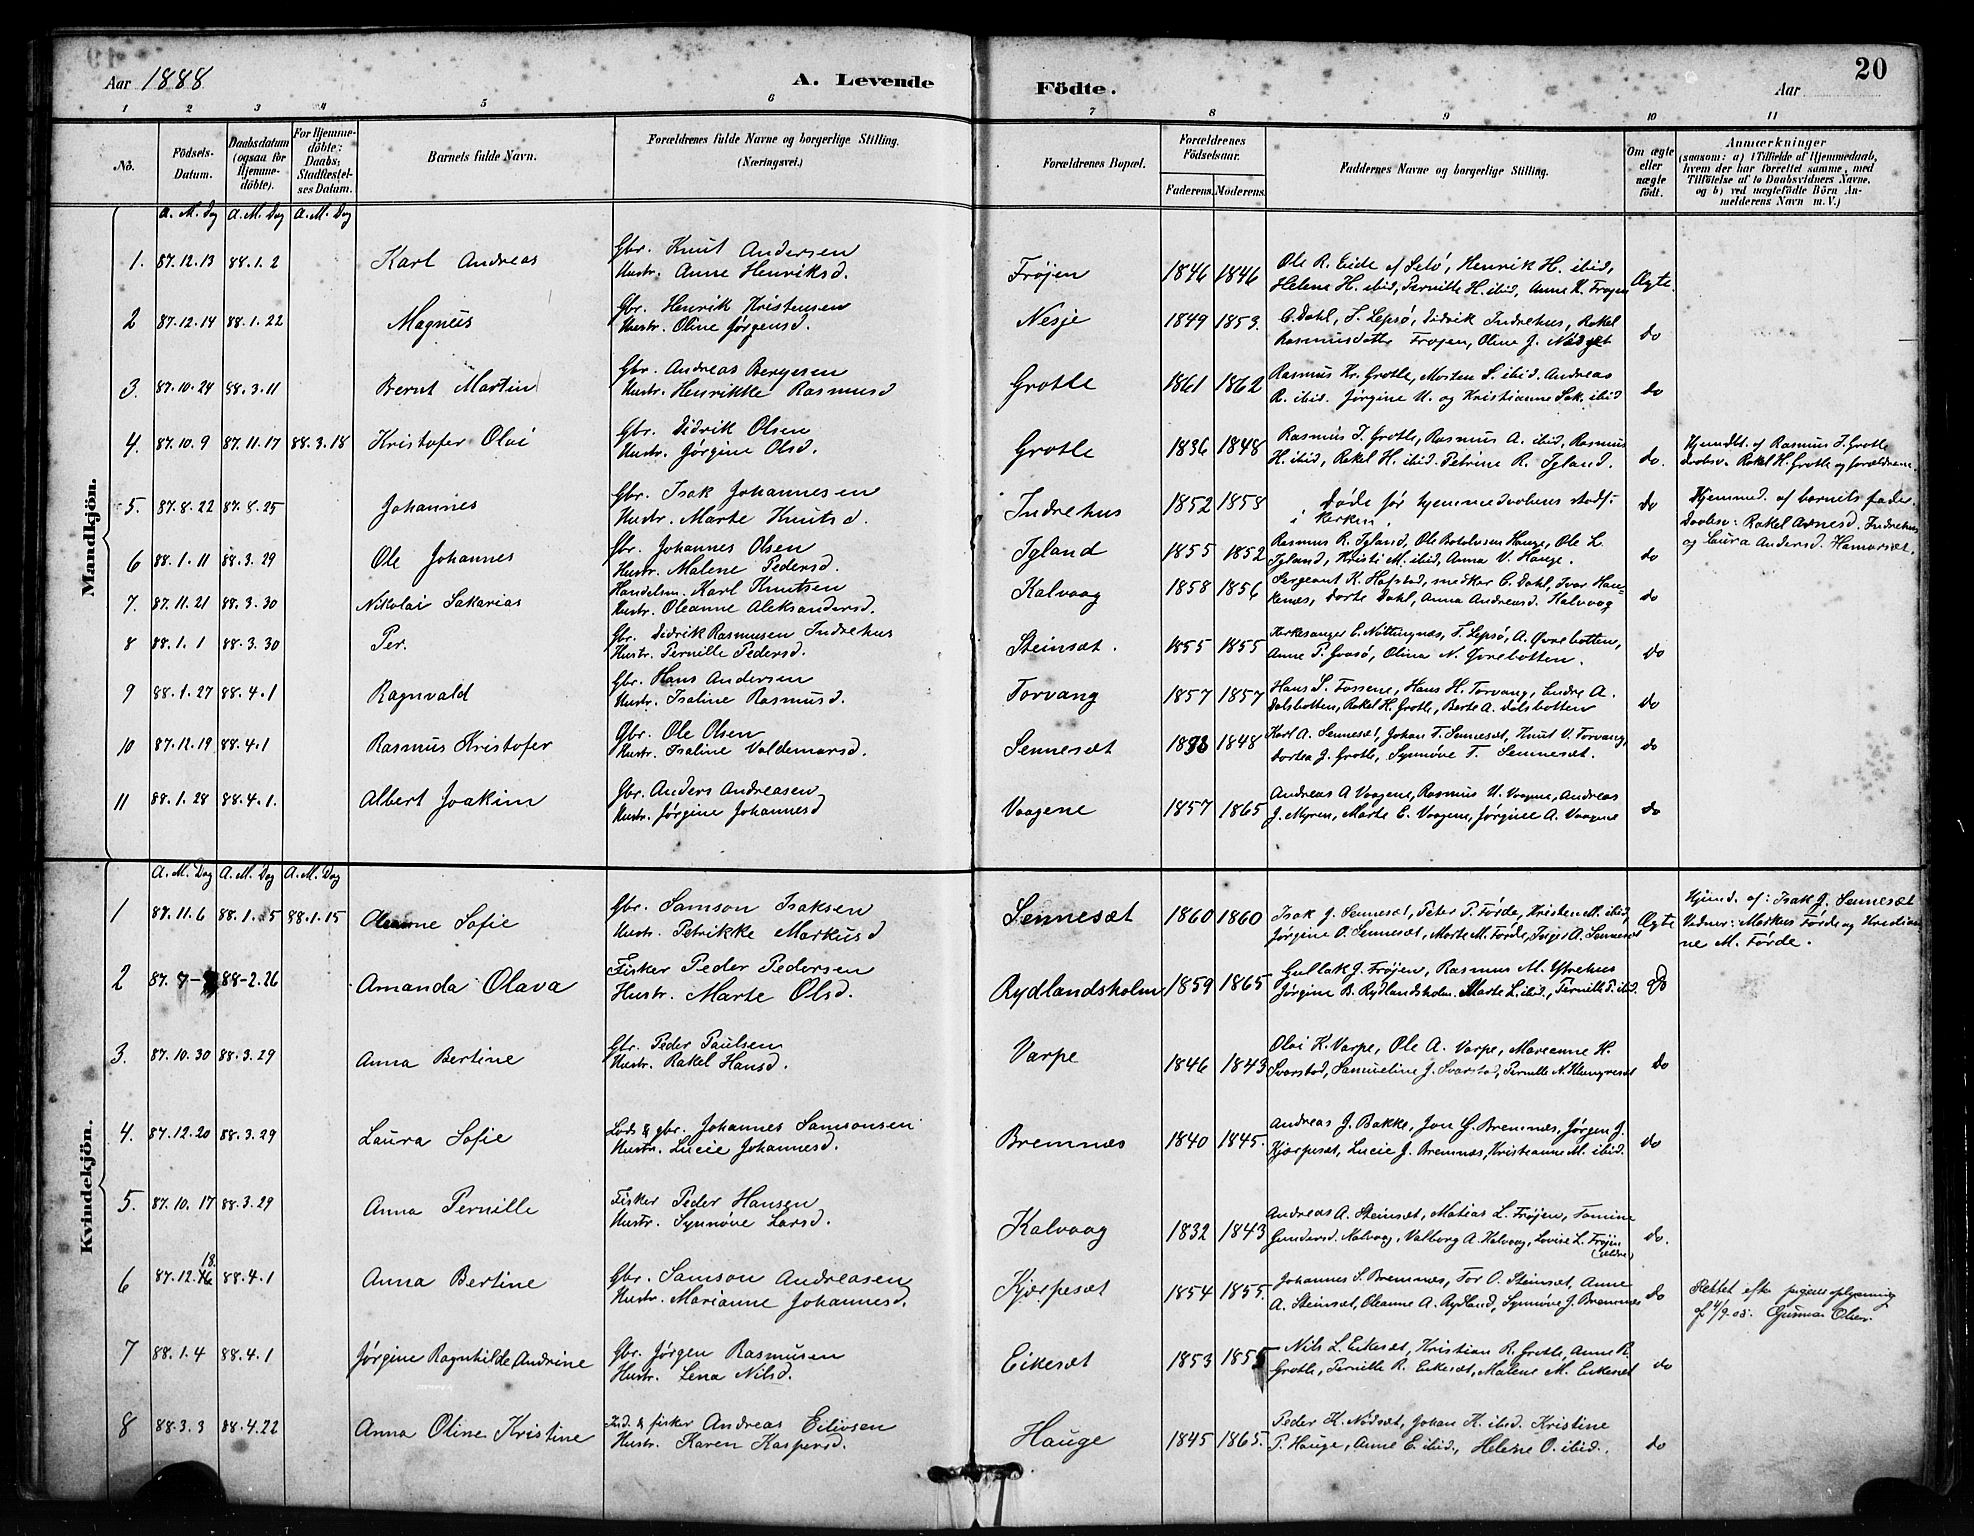 Aar 1888
A. Levende
Födte.
Aar
20
1 2 3 4 5 6 7 8 9 10 11
No.
Födsels-Datum.
Daabsdatum (ogsaa for Hjemme-döbte).
For Hjemme-döbte: Daabs; Stadfæstel-ses Datum.
Barnets fulde Navn.
Forældrenes fulde Navne og borgerlige Stilling. (Næringsvei.)
Forældrenes Bopæl.
Forældrenes Födselsaar.
Faderens. Moderens.
Faddernes Navne og borgerlige Stilling.
Om ægte eller uægte födt.
Anmærkninger
(saasom: a) i Tilfælde af Hjemmedaab, hvem der har forrettet samme, med Tilföielse af to Daabsvidners Navne, og b) ved uægtefödte Börn An-melderens Navn m. V.)
Mandkjön.
A. M. Dag A. M. Dag A. M. Dag
1. 87.12.13 88.1.2 Karl Andreas Gbr. Knut Andersen Frøjen 1846 1846 Ole R. Eide af Selø, Henrik H. ibid, Ægte.
Hustr. Anne Henriksd. Helene H. ibid, Pernille H. ibid, Anne K. Frøjen
2 87.12.14 88.1.22 Magnus Gbr. Henrik Kristensen Nesje 1849 1853. C. Dahl, T. Lepsø, Didrik Indrehus, Rakel do
Hustr. Oline Jørgensd. Rasmusdatter Frøjen, Oline J.
3. 87.10.24 88.3.11 Bernt Martin Gbr. Andreas Bergesen Grotle 1861 1862 Rasmus Kr. Grotle, Morten S. ibid. Andreas do
Hustr. Henrikke Rasmusd R. ibid. Jørgine U. og Kristianne Sak. ibid
4. 87.10.9 87.11.17 88.3.18 Kristofer Olai Gbr. Didrik Olsen Grotle 1836 1848 Rasmus J. Grotle, Rasmus A. ibid, Rasmus do. Hjemdbt. af Rasmus J. Grotle
Hustr. Jørgine Olsd. H. ibid, Rakel H. ibid. Petrine R. Igland. Daabsv. Rakel H. Grotle og forældrene.
5. 87.8.22 87.8.25 Johannes Gbr. Isak Johannesen Indrehus 1852 1858 Døde før hjemmedaabens stadf. do Hjemmed. af barnets fader.
Hustr. Marte Knutsd. i kirken. Daabsv: Rakel Arnesd. Indrehus
6 88.1.11 88.3.29 Ole Johannes Gbr. Johannes Olsen Igland 1855 1852 Rasmus R. Igland, Ole Botolvsen Hauge, Ole L. do og Laura Andersd. Hamarsæt.
Hustr. Malene Pedersd. Igland, Kristi M. ibid, Anna V. Hauge.
7. 87.11.21 88.3.30 Nikolai Sakarias Handelsm. Karl Knutsen Kalvaag 1858 1856 Sergeant K. Hafstad, C. Dahl, Ivar Hau- do
Hustr. Oleanne Aleksandersd. kenæs, Dorte Dahl, Anna Andreasd. Kalvaag
8 88.1.1 88.3.30 Per. Gbr. Didrik Rasmusen Indrehus Steinsæt. 1855 1855 Kirkesanger C. Nøttingnæs, T. Lepsø, A. Øvrebotten, do
Hustr. Pernille Pedersd. Anne P. Gaasø, Olina N. Øvrebotten.
9 88.1.27 88.4.1 Ragnvald Gbr. Hans Andersen Torvang 1857 1857 Hans S. Fossene, Hans H. Torvang, Endre A. do
Hustr. Isaline Rasmusd. Dalsbotten, Rakel H. Grotle, Berte A. Dalsbotten
10 87.12.19 88.4.1 Rasmus Kristofer Gbr. Ole Olsen Sennesæt 1848 Karl A. Sennesæt, Johan T. Sennesæt, Knut V. Torvang, do
Hustr. Isaline Valdemarsd. Dortea J. Grotle, Synnøve T. Sennesæt.
11 88.1.28 88.4.1. Albert Joakim Gbr. Anders Andreasen Vaagene 1857 1865 Andreas A Vaagene, Rasmus U. Vaagene, Andreas do
Hustr. Jørgine Johannesd J. Myren, Marte E. Vaagene, Jørgine A. Vaagene
Kvindekjön.
A. M. Dag A. M. Dag A. M. Dag
1 87.11.6 88.1.5 88.1.15 Sofie Gbr. Samson Isaksen Sennesæt 1860 1860 Isak J. Sennesæt, Peter P. Førde, Kristen M. ibid, Ægte Hjemd. af: Isak J. Sennesæt
Hustr. Petrikke Markusd Jørgine O. Sennesæt, Marte M. Førde, A. Sennesæt Vidner: Markus Førde og Kristian-
ne M. Førde.
2 87. 88-2.26 Amanda Olava Fisker Peder Pedersen Rydlandsholm 1859 1865 Gullak J. Frøjen, Rasmus M. Ytrehus do
Hustr. Marte Olsd. Jørgine B. Rydlandsholm. Marte L. ibid., Pernille P. ibid.
3. 87.10.30 88.3.29 Anna Bertine Gbr. Peder Paulsen Varpe 1846 1843 Olai K. Varpe, Ole A. Varpe, Marianne K. do
Hustr. Rakel Hansd. Svarstad, Samueline J. Svarstad, Pernille N.
4. 87.12.20 88.3.29 Laura Sofie Lods & gbr. Johannes Samsonsen Bremnæs 1840 1845. Andreas J. Bakke, Jon G. Bremnæs, Jørgen J. do
Hustr. Lucie Johannesd. Kjærpesæt, Lucie J. Bremnæs, Kristianne M. ibid.
5. 87.10.17 88.3.29 Anna Pernille Fisker Peder Hansen Kalvaag 1832 1843 Andreas A. Steinsæt, Matias L. Frøjen, Tomine do.
Hustr. Synnøve Larsd. Gundersd. Kalvaag, Valborg A. Kalvaag, Lovise L. Frøjen
18.
6 87.12.16 88.4.1 Anna Bertine Gbr. Samson Andreasen Kjærpesæt 1854 1855. Johannes S. Bremnæs, Tor O. Steinsæt, Anne do Rettet efter pigens oplysning
Hustr. Marianne Johannesd. A. Steinsæt, Oleanne A. Rydland, Synnøve J. Bremnæs af 4/9-05. Gunnar Olsen.
7 88.1.4 88.4.1 Jørgine Ragnhilde Andrine Gbr. Jørgen Rasmusen Eikesæt 1853 1855 Nils L. Eikesæt, Kristian R. Grotle, Anne R. do
Hustr. Lena Nilsd. Grotle, Pernille R. Eikesæt, Malene M. Eikesæt
8 88.3.3 88.4.22 Anna Oline Kristine Ind. & fisker Andreas Eilivsen Hauge 1845 1865. Peder K. Nødsæt, Johan K. ibid. Kristine do
Hustr. Karen Kaspersd. P. Hauge, Anne E. ibid., Helene O. ibid.